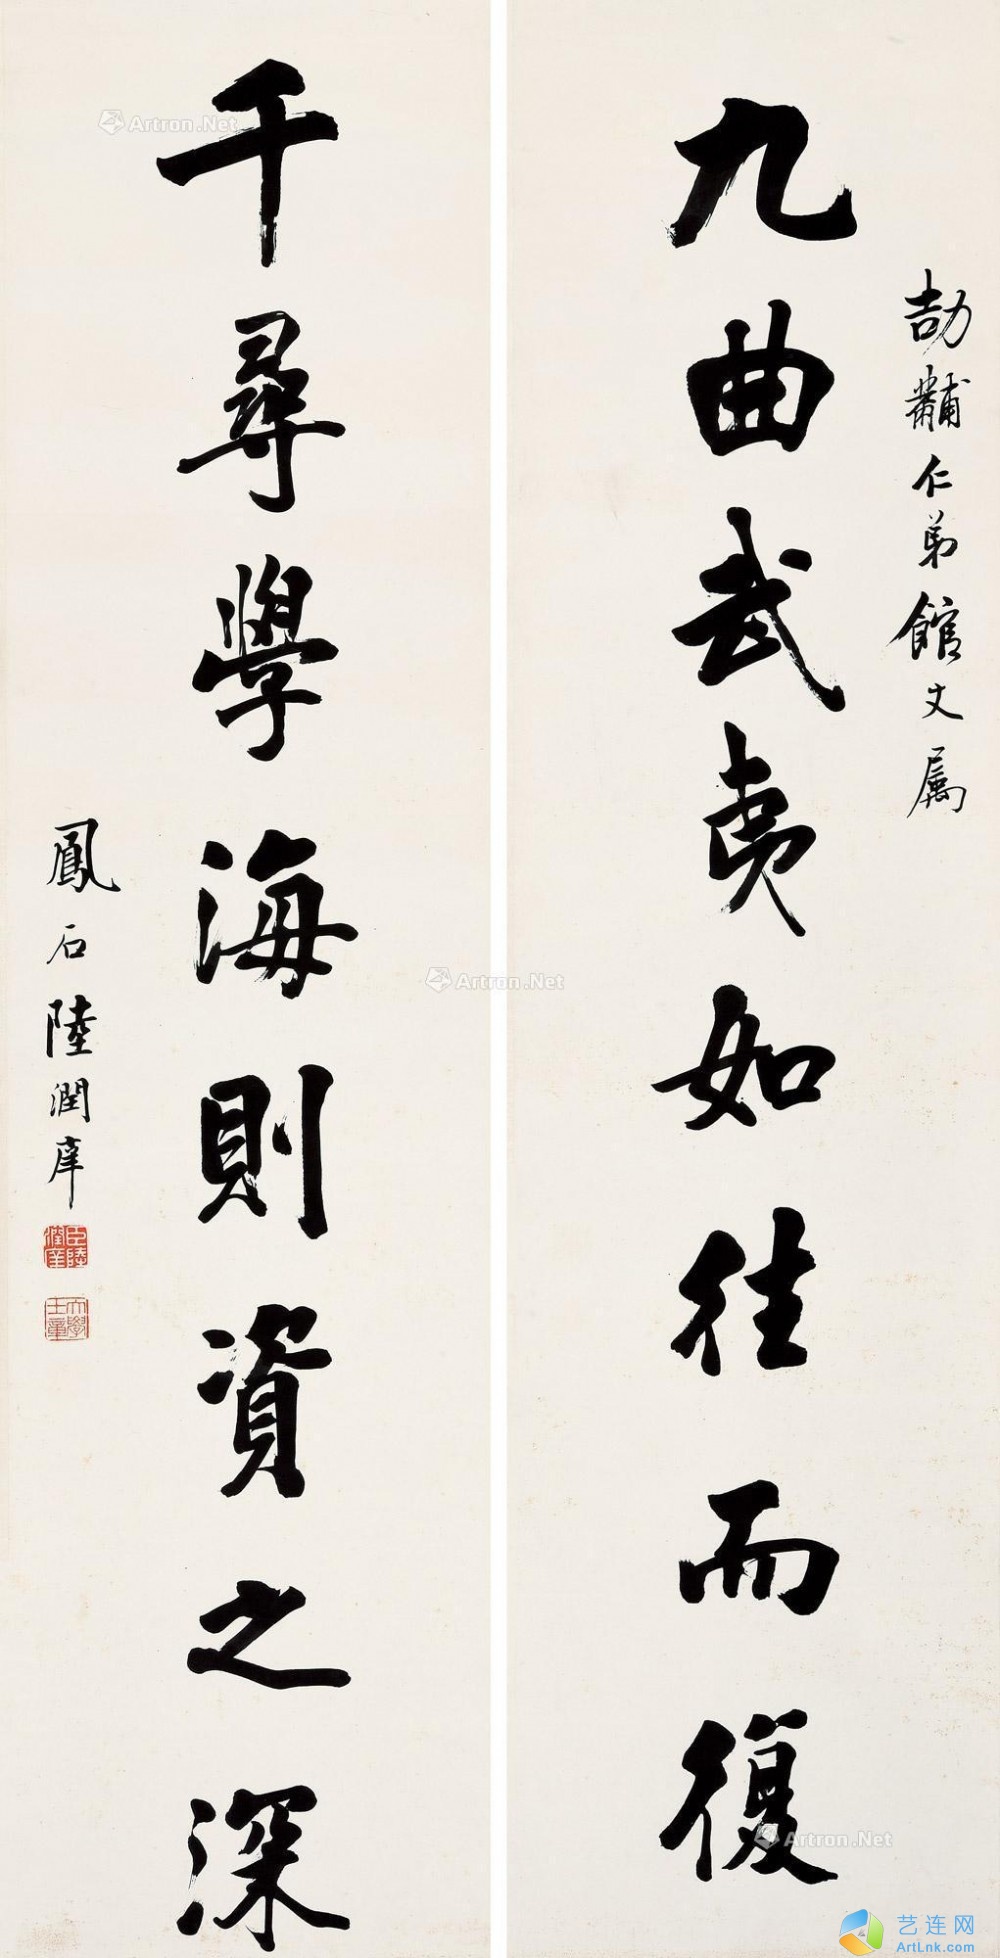 劼黼仁弟館丈屬
九曲武夷如往而復
千尋學海則資之深
鳳石陸潤庠
臣陸潤庠
大學士章
Artron.Net
Artron.Net
Artron.Net
艺连网
ArtLnk.com